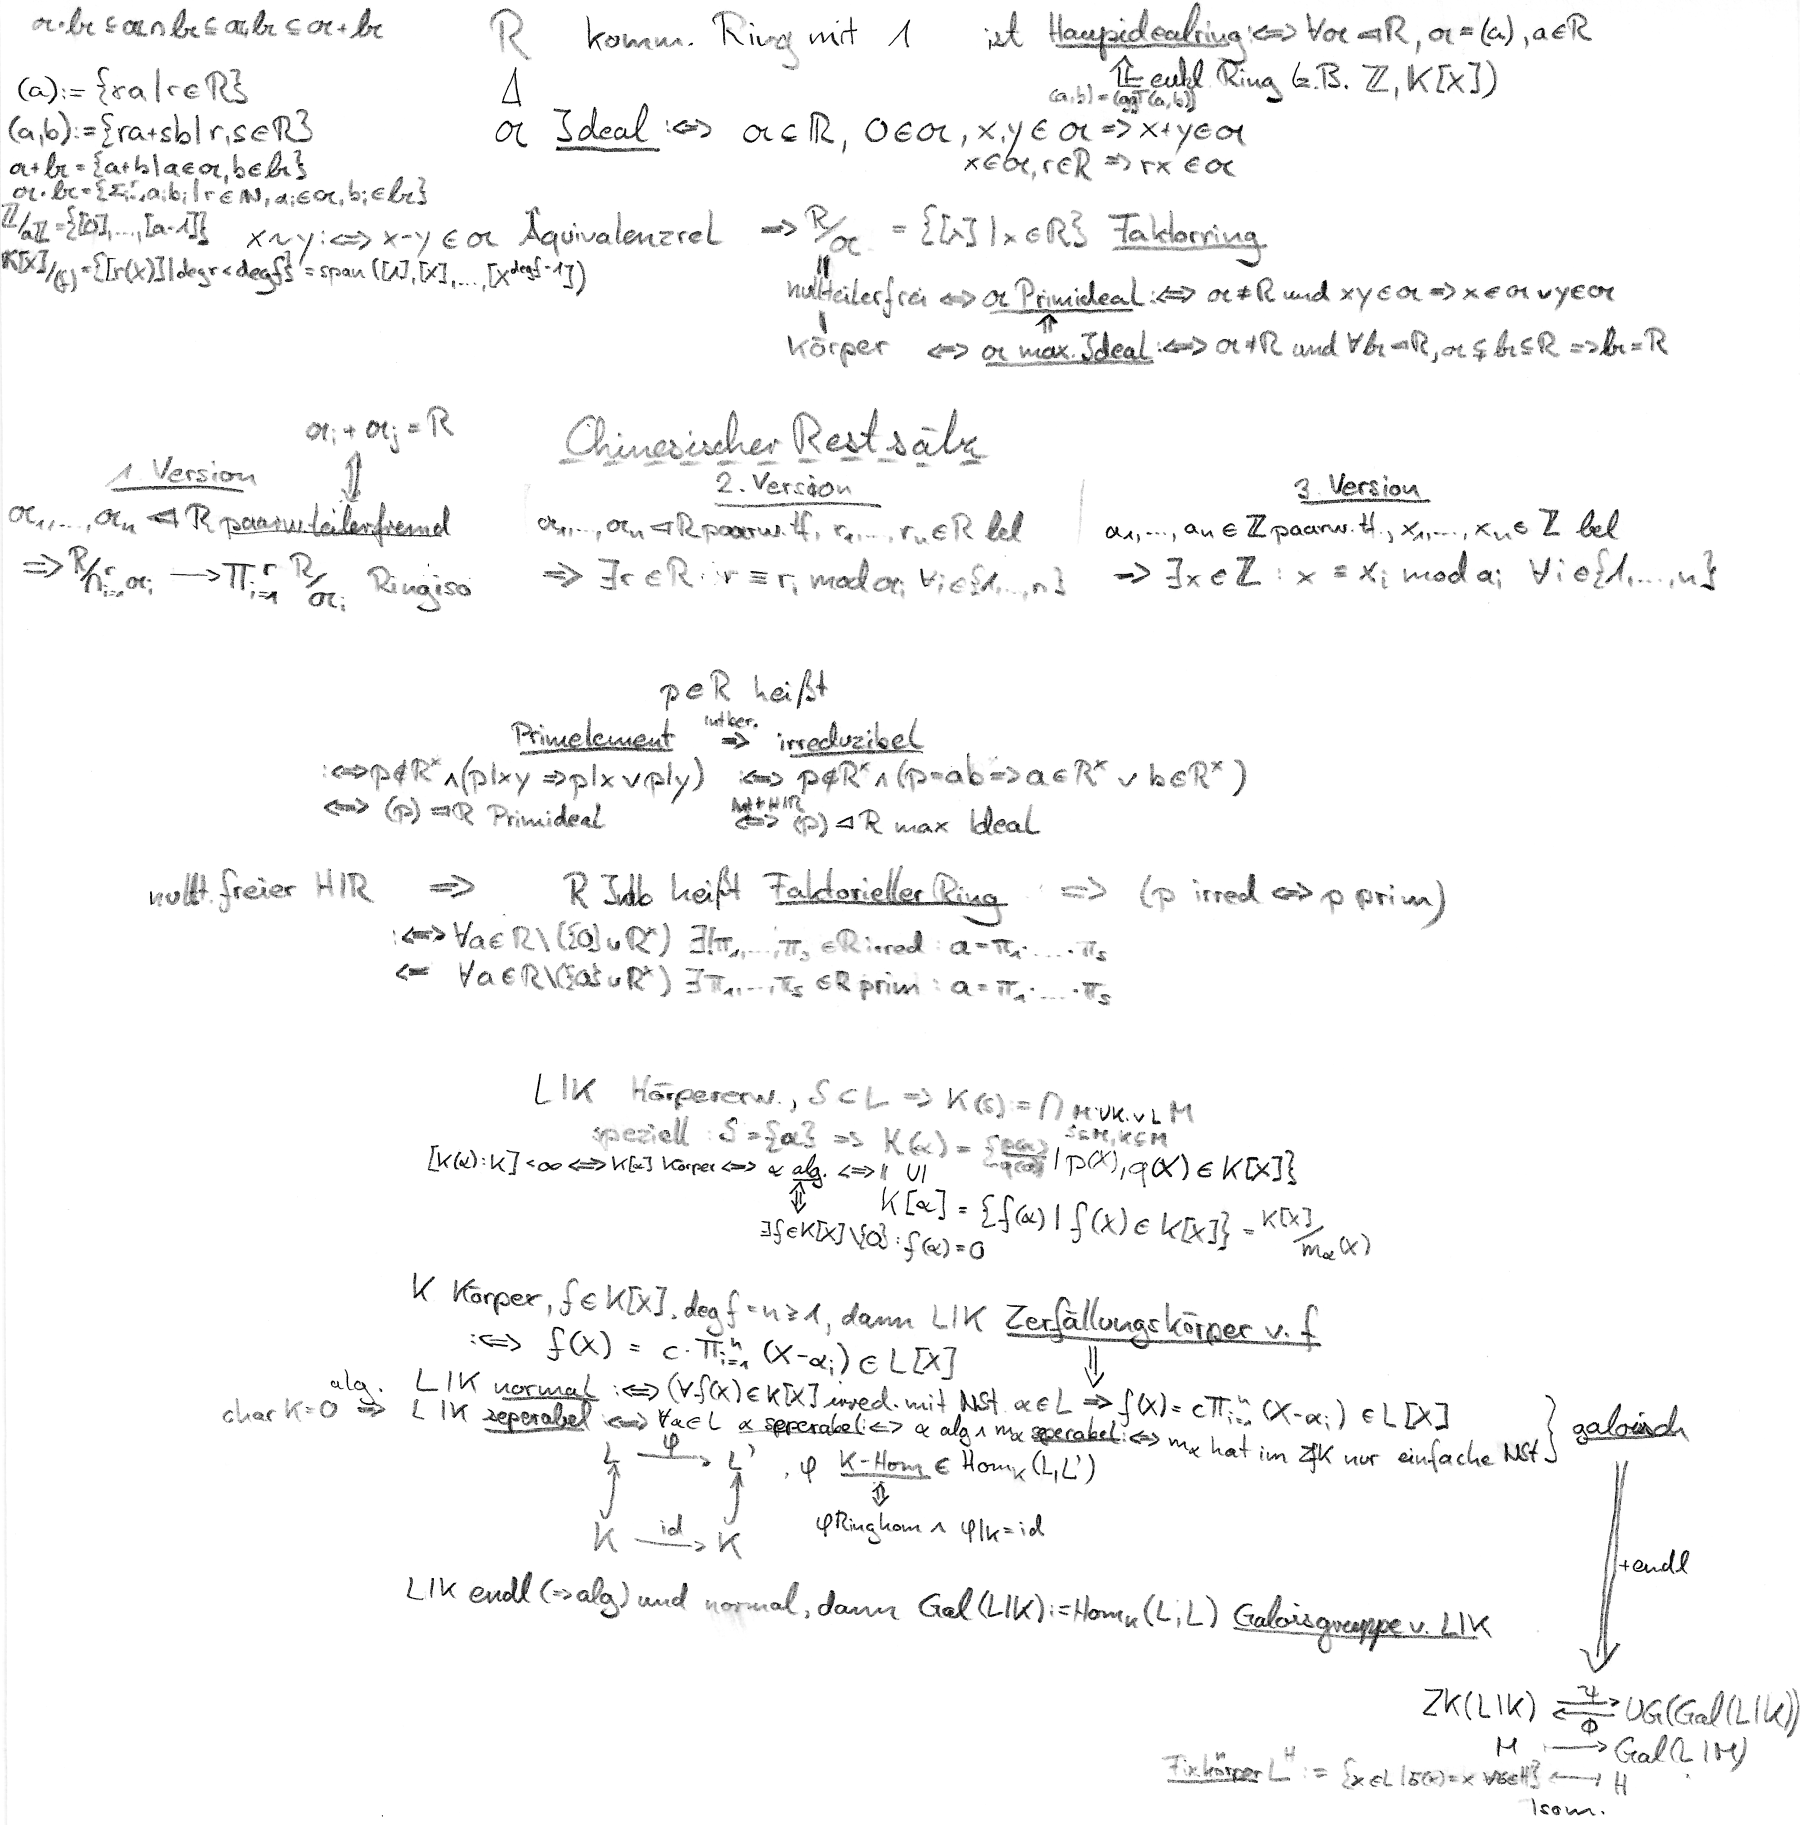 𝔞·𝔟 ⊆ 𝔞∩𝔟 ⊆ 𝔞,𝔟 ⊆ 𝔞+𝔟
R komm. Ring mit 1 ist Haupidealring :⇔ ∀𝔞 ⊲ R, 𝔞 = (a), a∈R
⇑ eukl. Ring (z.B. ℤ, K[X])
(a,b) = (ggT(a,b))
(a) := {ra | r∈R}
(a,b) := {ra+sb | r,s∈R}
𝔞+𝔟 = {a+b | a∈𝔞, b∈𝔟}
𝔞·𝔟 = {Σᵢ₌₁ʳ aᵢbᵢ | r∈ℕ, aᵢ∈𝔞, bᵢ∈𝔟}
ℤ/aℤ = {[0],...,[a-1]}
K[X]/(f) = {[r(X)] | deg r < deg f} = span([1],[X],...,[X^{deg f-1}])
𝔞 Ideal :⇔ 𝔞 ⊆ R, 0∈𝔞, x,y∈𝔞 ⇒ x+y∈𝔞
x∈𝔞, r∈R ⇒ rx∈𝔞
x~y :⇔ x-y∈𝔞 Äquivalenzrel ⇒ R/𝔞 = {[x] | x∈R} Faktorring
nullteilerfrei ⇔ 𝔞 Primideal :⇔ 𝔞≠R und xy∈𝔞 ⇒ x∈𝔞 ∨ y∈𝔞
⇑
Körper ⇔ 𝔞 max. Ideal :⇔ 𝔞≠R und ∀𝔟⊲R, 𝔞⊊𝔟⊆R ⇒ 𝔟=R
Chinesischer Restsätz
𝔞ᵢ + 𝔞ⱼ = R
⇕
1 Version
𝔞₁,...,𝔞ₙ ⊲ R paarw. teilerfremd
⇒ R/∩ᵢ₌₁ʳ 𝔞ᵢ → Πᵢ₌₁ʳ R/𝔞ᵢ Ringiso
2. Version
𝔞₁,...,𝔞ₙ ⊲ R paarw. tf, r₁,...,rₙ∈R bel
⇒ ∃r∈R : r ≡ rᵢ mod 𝔞ᵢ ∀i∈{1,...,n}
3. Version
a₁,...,aₙ∈ℤ paarw. tf., x₁,...,xₙ∈ℤ bel
⇒ ∃x∈ℤ : x ≡ xᵢ mod aᵢ ∀i∈{1,...,n}
p∈R heißt
Primelement ⇒ irreduzibel
:⇔ p∉Rˣ ∧ (p|xy ⇒ p|x ∨ p|y) :⇔ p∉Rˣ ∧ (p=ab ⇒ a∈Rˣ ∨ b∈Rˣ)
⇔ (p)⊲R Primideal ⇔ (p)⊲R max Ideal
nullt.freier HIR ⇒ R Intb heißt Faktorieller Ring ⇒ (p irred ⇔ p prim)
:⇔ ∀a∈R\({0}∪Rˣ) ∃!π₁,...,πₛ∈R irred : a = π₁·...·πₛ
⇐ ∀a∈R\({0}∪Rˣ) ∃π₁,...,πₛ∈R prim : a = π₁·...·πₛ
L|K Körpererw., S⊂L ⇒ K(S) := ∩ M UK. v L M
S⊆M, K⊆M
speziell : S={α} ⇒ K(α) = {p(α)/q(α) | p(X), q(X)∈K[X]}
[K(α):K]<∞ ⇔ K[α] Körper ⇔ α alg. ⇔ || ∪|
⇕
K[α] = {f(α) | f(X)∈K[X]} = K[X]/mα(X)
∃f∈K[X]\{0} : f(α)=0
K Körper, f∈K[X], deg f = n≥1, dann L|K Zerfällungskörper v. f
:⇔ f(X) = c·Πᵢ₌₁ⁿ (X-αᵢ) ∈ L[X]
⇓
alg. L|K normal :⇔ (∀f(X)∈K[X] irred. mit NSt. α∈L ⇒ f(X) = cΠᵢ₌₁ⁿ (X-αᵢ) ∈ L[X]
char K=0 ⇒ L|K seperabel :⇔ ∀α∈L α seperabel :⇔ α alg ∧ mα seperabel :⇔ mα hat im ZfK nur einfache NSt } galoisch
L φ→ L', φ K-Hom ∈ Hom_K(L,L')
⇕
K id→ K φ Ringhom ∧ φ|K = id
+endl
L|K endl (⇒alg) und normal, dann Gal(L|K) := Hom_K(L,L) Galoisgruppe v. L|K
ZK(L|K) Ψ ⇄ Φ UG(Gal(L|K))
M ↦ Gal(L|M)
Fixkörper Lᴴ := {x∈L | σ(x)=x ∀σ∈H} ↤ H
Isom.